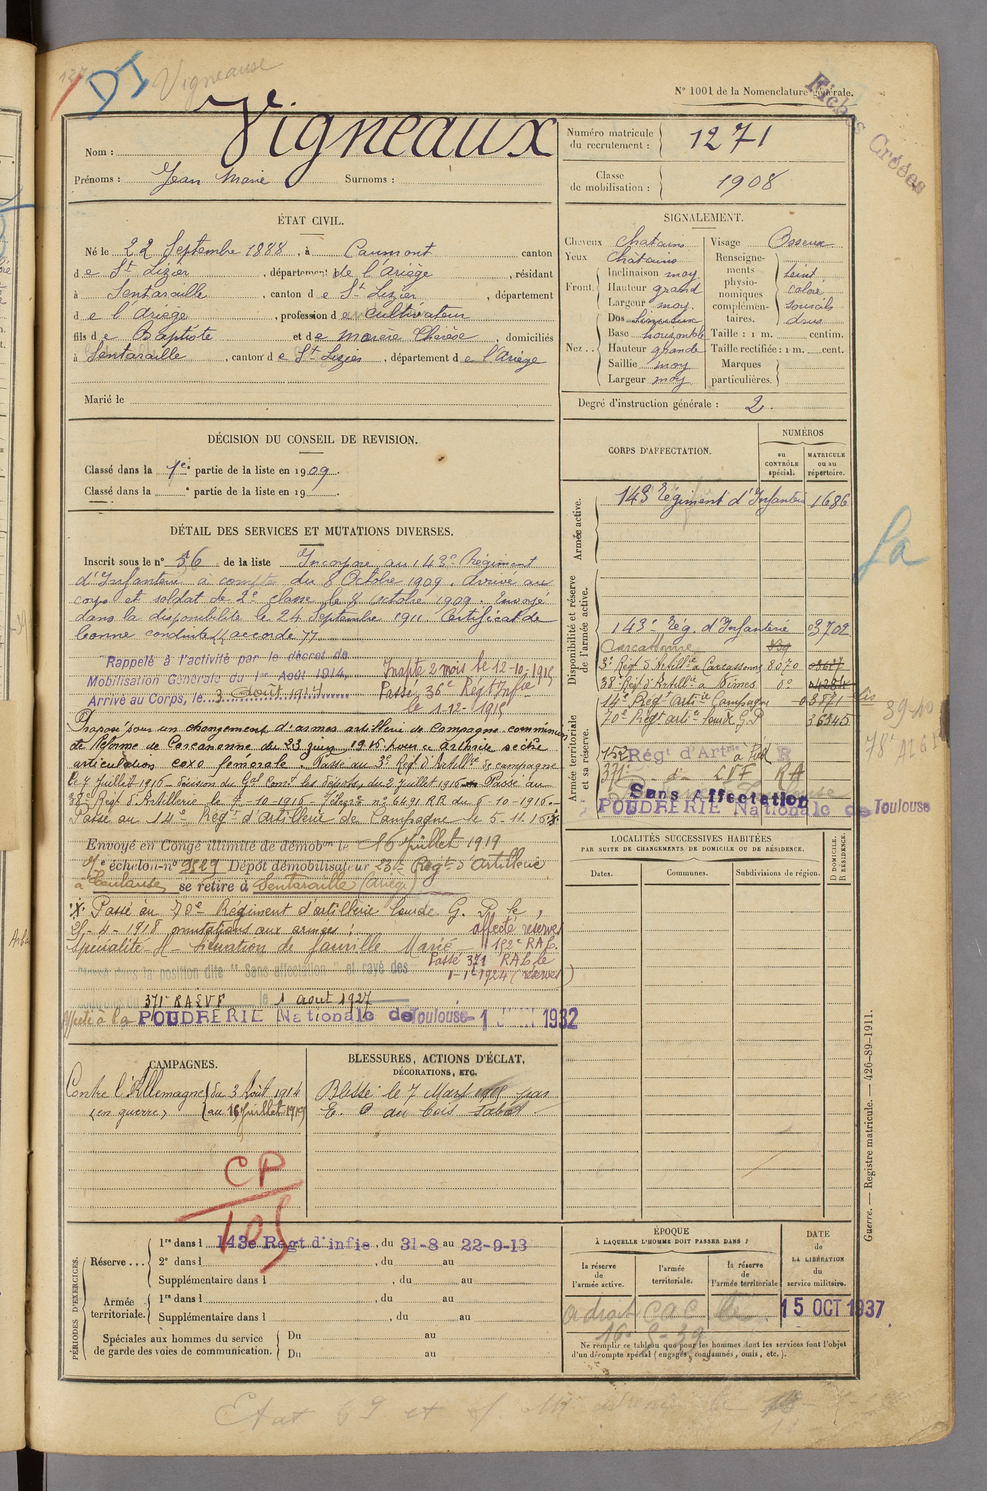 Vigneause
N° 1001 de la Nomenclature générale.
Fiches Créées
Nom : Vigneaux
Prénoms : Jean Marie Surnoms :
Numéro matricule du recrutement : 1271
Classe de mobilisation : 1908
ÉTAT CIVIL.
Né le 22 Septembre 1888, à Caumont canton
de St Lizier, département de l'Ariège, résidant
à Sentaraille, canton de St Lizier, département
de l'Ariège, profession de Cultivateur
fils de Baptiste et de Morère Thérèse, domiciliés
à Sentaraille, canton de St Lizier, département de l'Ariège
Marié le
SIGNALEMENT.
Cheveux châtains
Yeux châtains
Front. Inclinaison moy
Hauteur grand
Largeur moy.
Nez .. Dos sinueux
Base horizontale
Hauteur grande
Saillie moy
Largeur moy
Visage Osseux
Renseignements physionomiques complémentaires. teint coloré sourcils drus
Taille : 1 m. centim.
Taille rectifiée : 1 m. cent.
Marques particulières.
Degré d'instruction générale : 2.
DÉCISION DU CONSEIL DE REVISION.
Classé dans la 1re partie de la liste en 1909.
Classé dans la e partie de la liste en 19
CORPS D'AFFECTATION.
NUMÉROS
au CONTRÔLE spécial.
MATRICULE ou au répertoire.
Armée active.
143e Régiment d'Infanterie 1686
Disponibilité et réserve de l'armée active.
143e Rég. d'Infanterie 03702
Carcassonne
3e Régt d'Artillie à Carcassonne 8070
38e Régt d'Artillie à Nîmes
14e Régt Artie Campagne
70e Régt artie lourde G.P 36345
Armée territoriale et sa réserve.
152 Régt d'Artrie à Pied
371e - d° - LVF RA
Sans Affectation
POUDRERIE Nationale de Toulouse
DÉTAIL DES SERVICES ET MUTATIONS DIVERSES.
Inscrit sous le n° 36 de la liste Incorporé au 143e Régiment
d'Infanterie à compter du 8 Octobre 1909. Arrivé au
corps et soldat de 2e classe le 8 octobre 1909. Envoyé
dans la disponibilité le 24 Septembre 1911. Certificat de
bonne conduite accordé
Rappelé à l'activité par le décret de
Mobilisation Générale du 1er Août 1914,
Arrivé au Corps, le 3 août 1914
Inapte 2 mois le 12-10-1915
Passé 36e Régt Infie
le 1-12-1915
Proposé pour un changement d'armes artillerie de campagne commission
de Réforme de Carcassonne du 23 juin 1915 pour arthrite sèche
articulation coxo fémorale. Passé au 3e Régt d'Artillie de campagne
le 7 Juillet 1916 décision du Gal Comt les Dépôts, du 2 Juillet 1916 Passé au
38e Régt d'Artillerie le 9-10-1916 Télégr. n° 6491 RR du 6-10-1916.
Passé au 14e Régt d'artillerie de Campagne le 5.11.16
Envoyé en Congé illimité de démobon le 16 Juillet 1919
7e échelon n° 9529 Dépôt démobilisateur 23e Régt d'Artillerie
à Toulouse se retire à Sentaraille (Ariège)
Passé au 70e Régiment d'artillerie lourde G. P le
25-4-1918 mutations aux armées :
Spécialité H - Situation de famille Marié
affecté réserves
152e RAP.
Passé 371 RAL le
1-1-1924 (réserves)
Classé dans la position dite "Sans affectation" et rayé des
371e RALVF le 1 aout 1927
Affecté à la POUDRERIE Nationale de Toulouse - 1 JUIN 1932
LOCALITÉS SUCCESSIVES HABITÉES
PAR SUITE DE CHANGEMENTS DE DOMICILE OU DE RÉSIDENCE.
Dates.
Communes.
Subdivisions de région.
D DOMICILE. R RÉSIDENCE.
CAMPAGNES.
Contre l'Allemagne (du 3 Août 1914
(en guerre) (au 16 Juillet 1919
BLESSURES, ACTIONS D'ÉCLAT,
DÉCORATIONS, ETC.
Blessé le 7 Mars 1915 par
E. O au bois Sabot
CP
105
PÉRIODES D'EXERCICES.
Réserve ... 1re dans l 143e Régt d'infie, du 31-8 au 22-9-13
2e dans l , du au
Supplémentaire dans l , du au
Armée territoriale. 1re dans l , du au
Supplémentaire dans l , du au
Spéciales aux hommes du service de garde des voies de communication. Du au
Du au
ÉPOQUE
À LAQUELLE L'HOMME DOIT PASSER DANS :
la réserve de l'armée active.
l'armée territoriale.
la réserve de l'armée territoriale
DATE de LA LIBÉRATION du service militaire.
a droit C A C le
16-5-39
15 OCT 1937
Ne remplir ce tableau que pour les hommes dont les services font l'objet
d'un décompte spécial (engagés, condamnés, omis, etc.).
Guerre. — Registre matricule. — 426-89-1911.